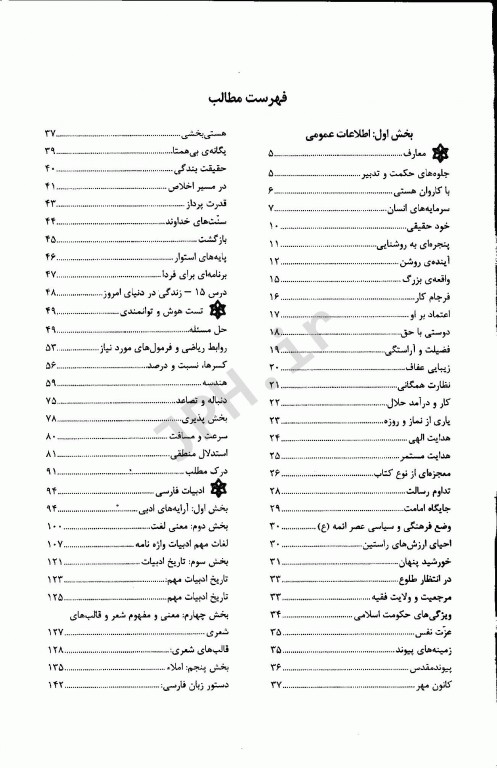 فهرست مطالب
بخش اول: اطلاعات عمومی
معارف ..... ۵
جلوه‌های حکمت و تدبیر ..... ۵
با کاروان هستی ..... ۶
سرمایه‌های انسان ..... ۷
خود حقیقی ..... ۱۰
پنجره‌ای به روشنایی ..... ۱۱
آینده‌ی روشن ..... ۱۲
واقعه‌ی بزرگ ..... ۱۵
فرجام کار ..... ۱۶
اعتماد بر او ..... ۱۷
دوستی با حق ..... ۱۸
فضیلت و آراستگی ..... ۱۹
زیبایی عفاف ..... ۲۰
نظارت همگانی ..... ۲۱
کار و درآمد حلال ..... ۲۲
یاری از نماز و روزه ..... ۲۳
هدایت الهی ..... ۲۴
هدایت مستمر ..... ۲۵
معجزه‌ای از نوع کتاب ..... ۲۶
تداوم رسالت ..... ۲۸
جایگاه امامت ..... ۲۹
وضع فرهنگی و سیاسی عصر ائمه (ع) ..... ۳۰
احیای ارزش‌های راستین ..... ۳۰
خورشید پنهان ..... ۳۱
در انتظار طلوع ..... ۳۳
مرجعیت و ولایت فقیه ..... ۳۳
ویژگی‌های حکومت اسلامی ..... ۳۴
عزّت نفس ..... ۳۵
زمینه‌های پیوند ..... ۳۵
پیوندمقدس ..... ۳۶
کانون مهر ..... ۳۷
هستی‌بخشی ..... ۳۷
یگانه‌ی بی‌همتا ..... ۳۹
حقیقت بندگی ..... ۴۰
در مسیر اخلاص ..... ۴۱
قدرت پرداز ..... ۴۳
سنّت‌های خداوند ..... ۴۴
بازگشت ..... ۴۵
پایه‌های استوار ..... ۴۶
برنامه‌ای برای فردا ..... ۴۷
درس ۱۵ – زندگی در دنیای امروز ..... ۴۸
تست هوش و توانمندی ..... ۴۹
حل مسئله ..... ۴۹
روابط ریاضی و فرمول‌های مورد نیاز ..... ۵۳
کسرها، نسبت و درصد ..... ۵۶
هندسه ..... ۵۹
دنباله و تصاعد ..... ۷۵
بخش پذیری ..... ۷۸
سرعت و مسافت ..... ۸۰
استدلال منطقی ..... ۸۱
درک مطلب ..... ۹۱
ادبیات فارسی ..... ۹۴
بخش اول: آرایه‌های ادبی ..... ۹۴
بخش دوم: معنی لغت ..... ۱۰۰
لغات مهم ادبیات واژه نامه ..... ۱۰۷
بخش سوم: تاریخ ادبیات ..... ۱۲۱
تاریخ ادبیات مهم: ..... ۱۲۳
تاریخ ادبیات مهم: ..... ۱۲۵
بخش چهارم: معنی و مفهوم شعر و قالب‌های
شعری ..... ۱۲۷
قالب‌های شعری: ..... ۱۲۸
بخش پنجم: املاء ..... ۱۳۵
دستور زبان فارسی: ..... ۱۴۲
JPH.ir